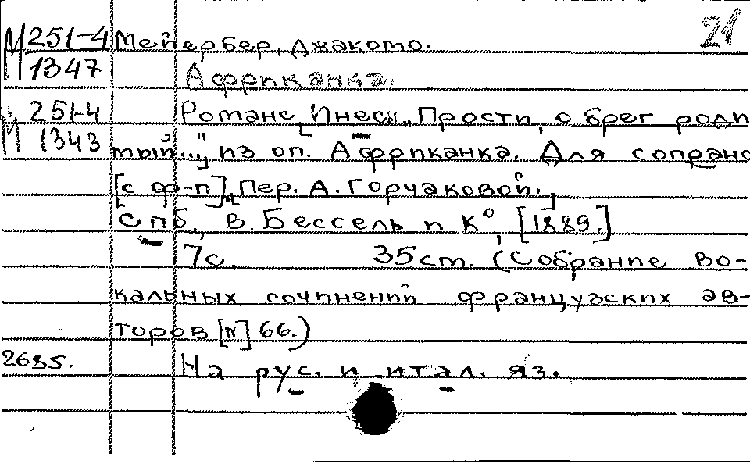 М 251-4 Мейербер, Джакомо. 21
1347 Африканка.
М 251-4 Романс [Инесы „Прости, о брег роди
1343 мый..."] из оп. Африканка. Для сопрано
[с ф-п]. Пер. А. Горчаковой.
Спб., В. Бессель и К°, [1889.]
7с. 35см. (Собрание во-
кальных сочинений французских ав-
торов [N] 66.)
2685. На рус. и итал. яз.